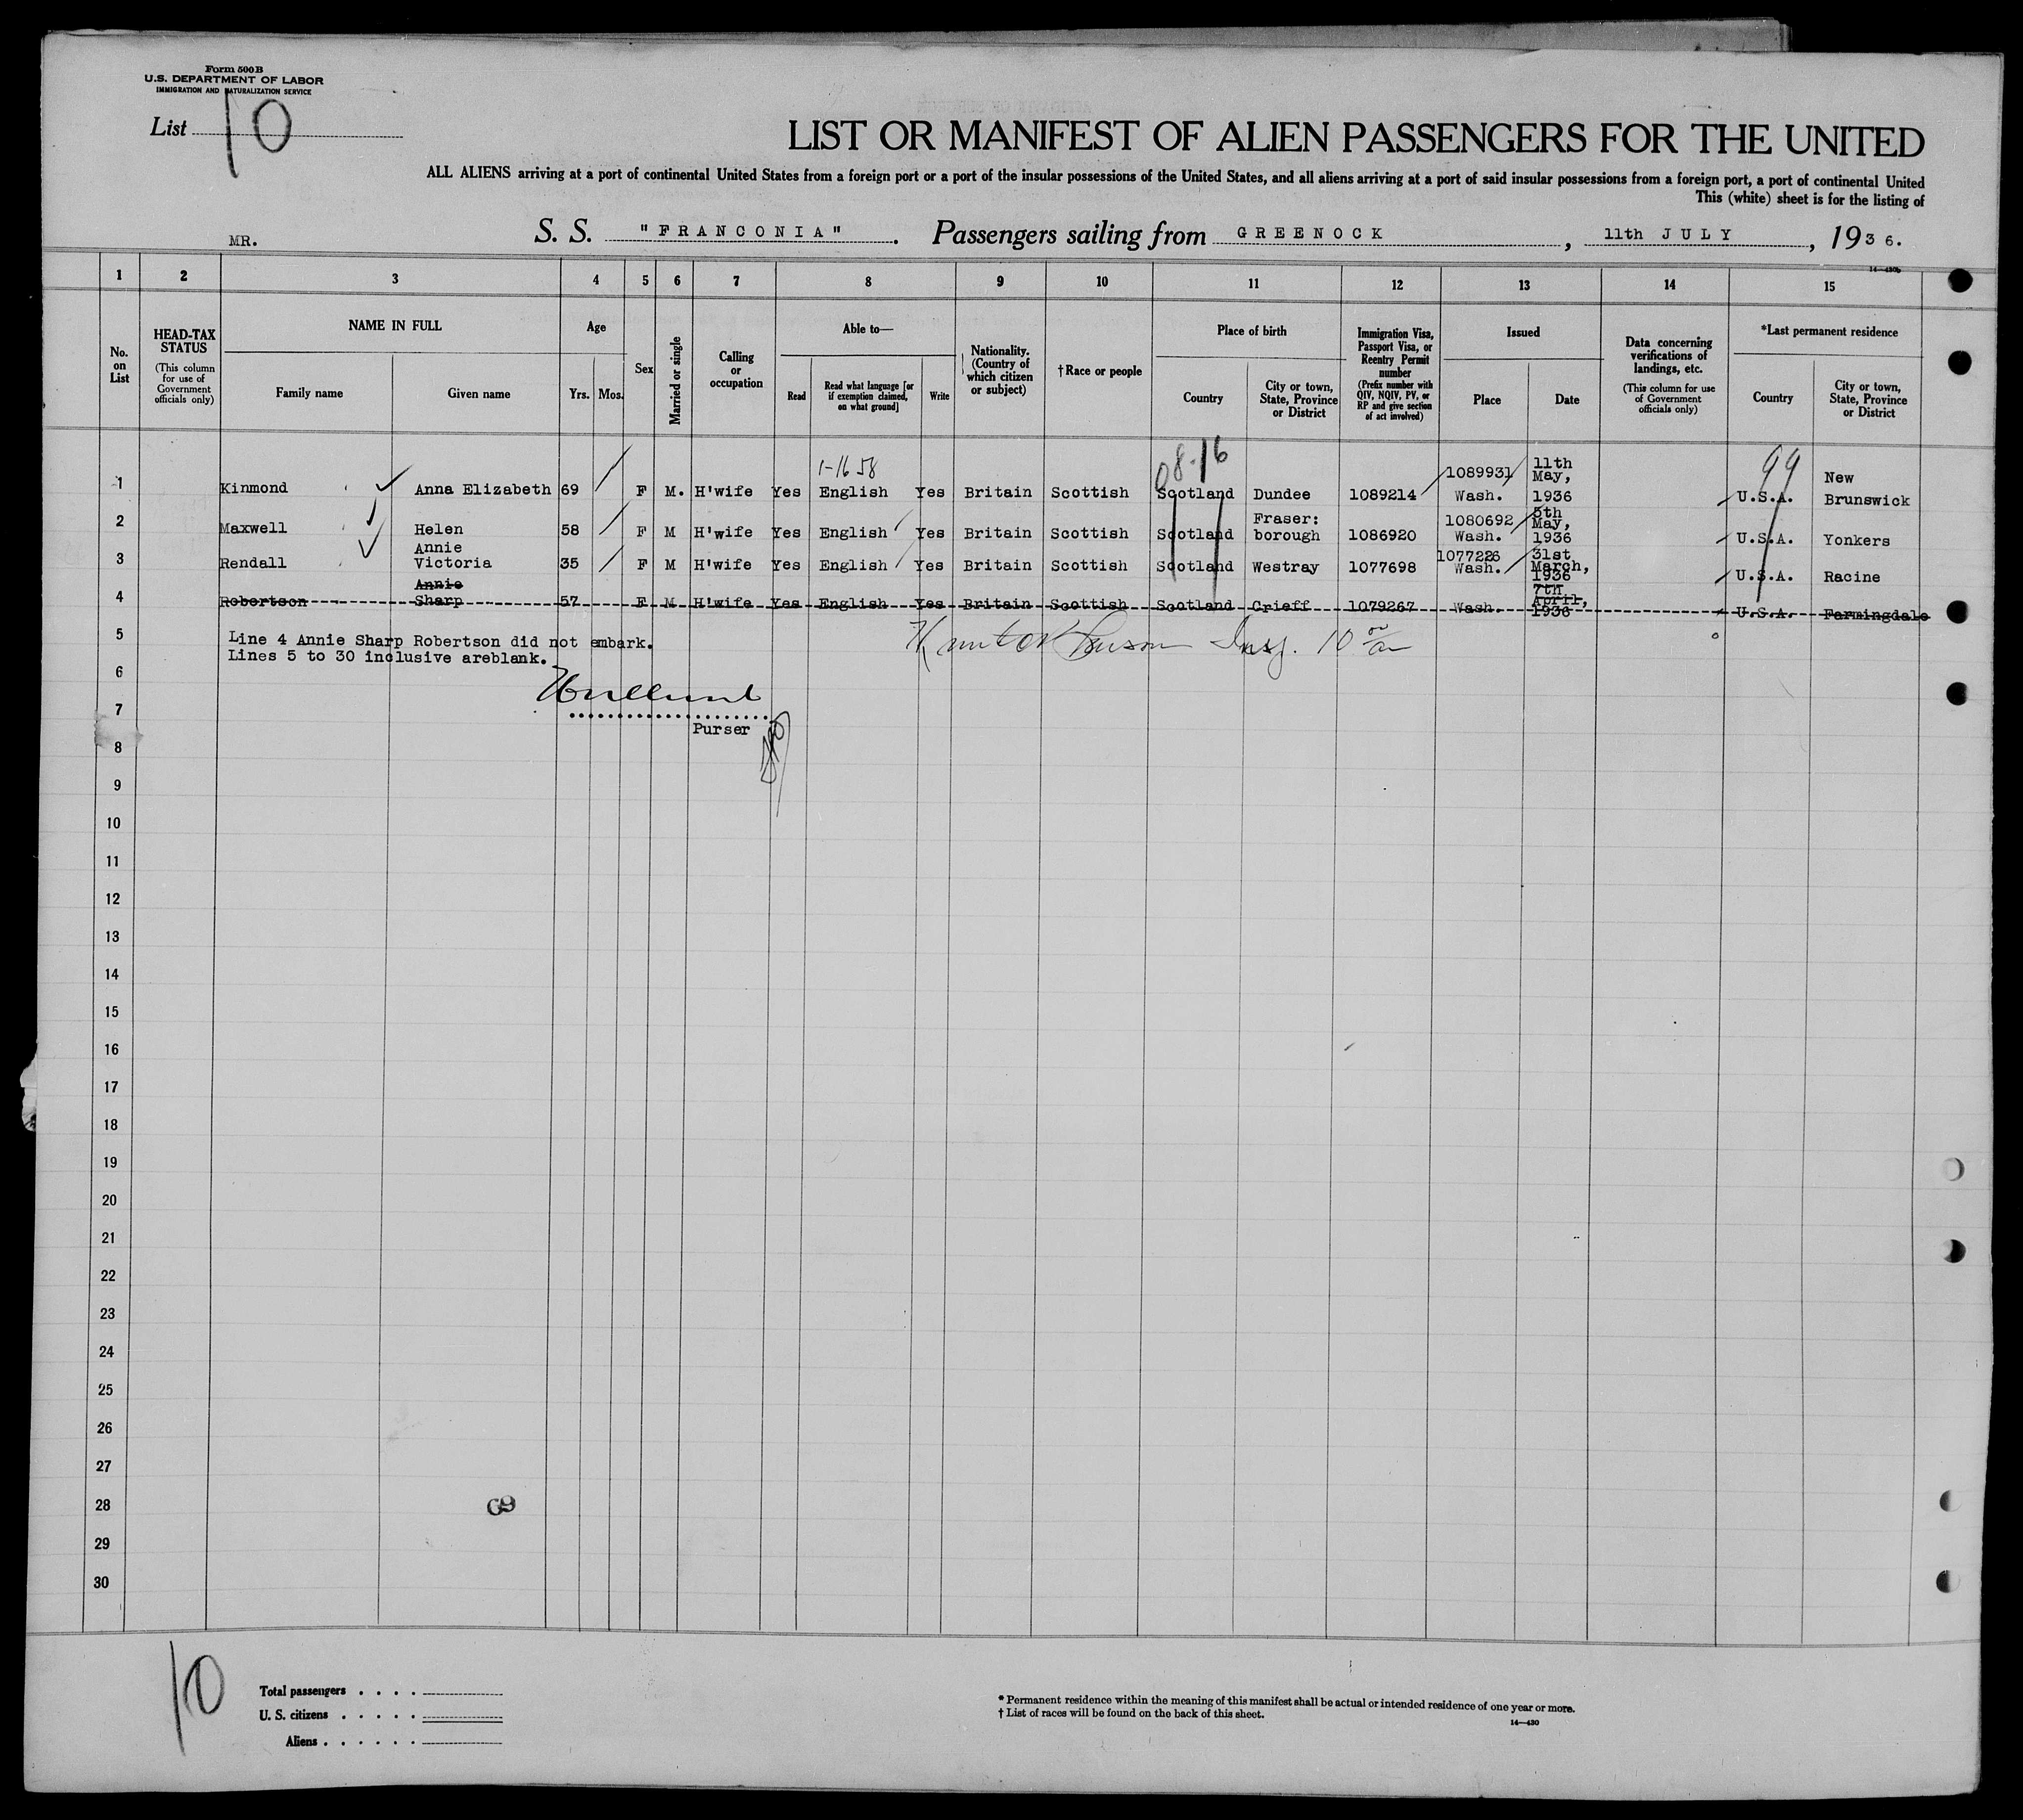 Form 500B
U.S. DEPARTMENT OF LABOR
IMMIGRATION AND NATURALIZATION SERVICE
List 10
LIST OR MANIFEST OF ALIEN PASSENGERS FOR THE UNITED
ALL ALIENS arriving at a port of continental United States from a foreign port or a port of the insular possessions of the United States, and all aliens arriving at a port of said insular possessions from a foreign port, a port of continental United
This (white) sheet is for the listing of
MR. S. S. "FRANCONIA". Passengers sailing from GREENOCK, 11th JULY, 1936.
14-430b
1 2 3 4 5 6 7 8 9 10 11 12 13 14 15
No. on List
HEAD-TAX STATUS
(This column for use of Government officials only)
NAME IN FULL
Family name Given name
Age
Yrs. Mos.
Sex
Married or single
Calling or occupation
Able to—
Read Read what language [or if exemption claimed, on what ground] Write
Nationality. (Country of which citizen or subject)
†Race or people
Place of birth
Country City or town, State, Province or District
Immigration Visa, Passport Visa, or Reentry Permit number
(Prefix number with QIV, NQIV, PV, or RP and give section of act involved)
Issued
Place Date
Data concerning verifications of landings, etc.
(This column for use of Government officials only)
*Last permanent residence
Country City or town, State, Province or District
1-16 58 08-16 99
1 Kinmond Anna Elizabeth 69 F M. H'wife Yes English Yes Britain Scottish Scotland Dundee 1089214 1089931 Wash. 11th May, 1936 U.S.A. New Brunswick
2 Maxwell Helen 58 F M H'wife Yes English Yes Britain Scottish Scotland Fraser: borough 1086920 1080692 Wash. 5th May, 1936 U.S.A. Yonkers
3 Rendall Annie Victoria 35 F M H'wife Yes English Yes Britain Scottish Scotland Westray 1077698 1077226 Wash. 31st March, 1936 U.S.A. Racine
4 Robertson Annie Sharp 57 F M H'wife Yes English Yes Britain Scottish Scotland Crieff 1079267 Wash. 7th April, 1936 U.S.A. Farmingdale
5 Line 4 Annie Sharp Robertson did not embark.
Lines 5 to 30 inclusive areblank.
Insp. 10
6
7
Purser
8
9
10
11
12
13
14
15
16
17
18
19
20
21
22
23
24
25
26
27
28
69
29
30
10
Total passengers . . . .
U. S. citizens . . . . .
Aliens . . . . . .
* Permanent residence within the meaning of this manifest shall be actual or intended residence of one year or more.
† List of races will be found on the back of this sheet.
14-430